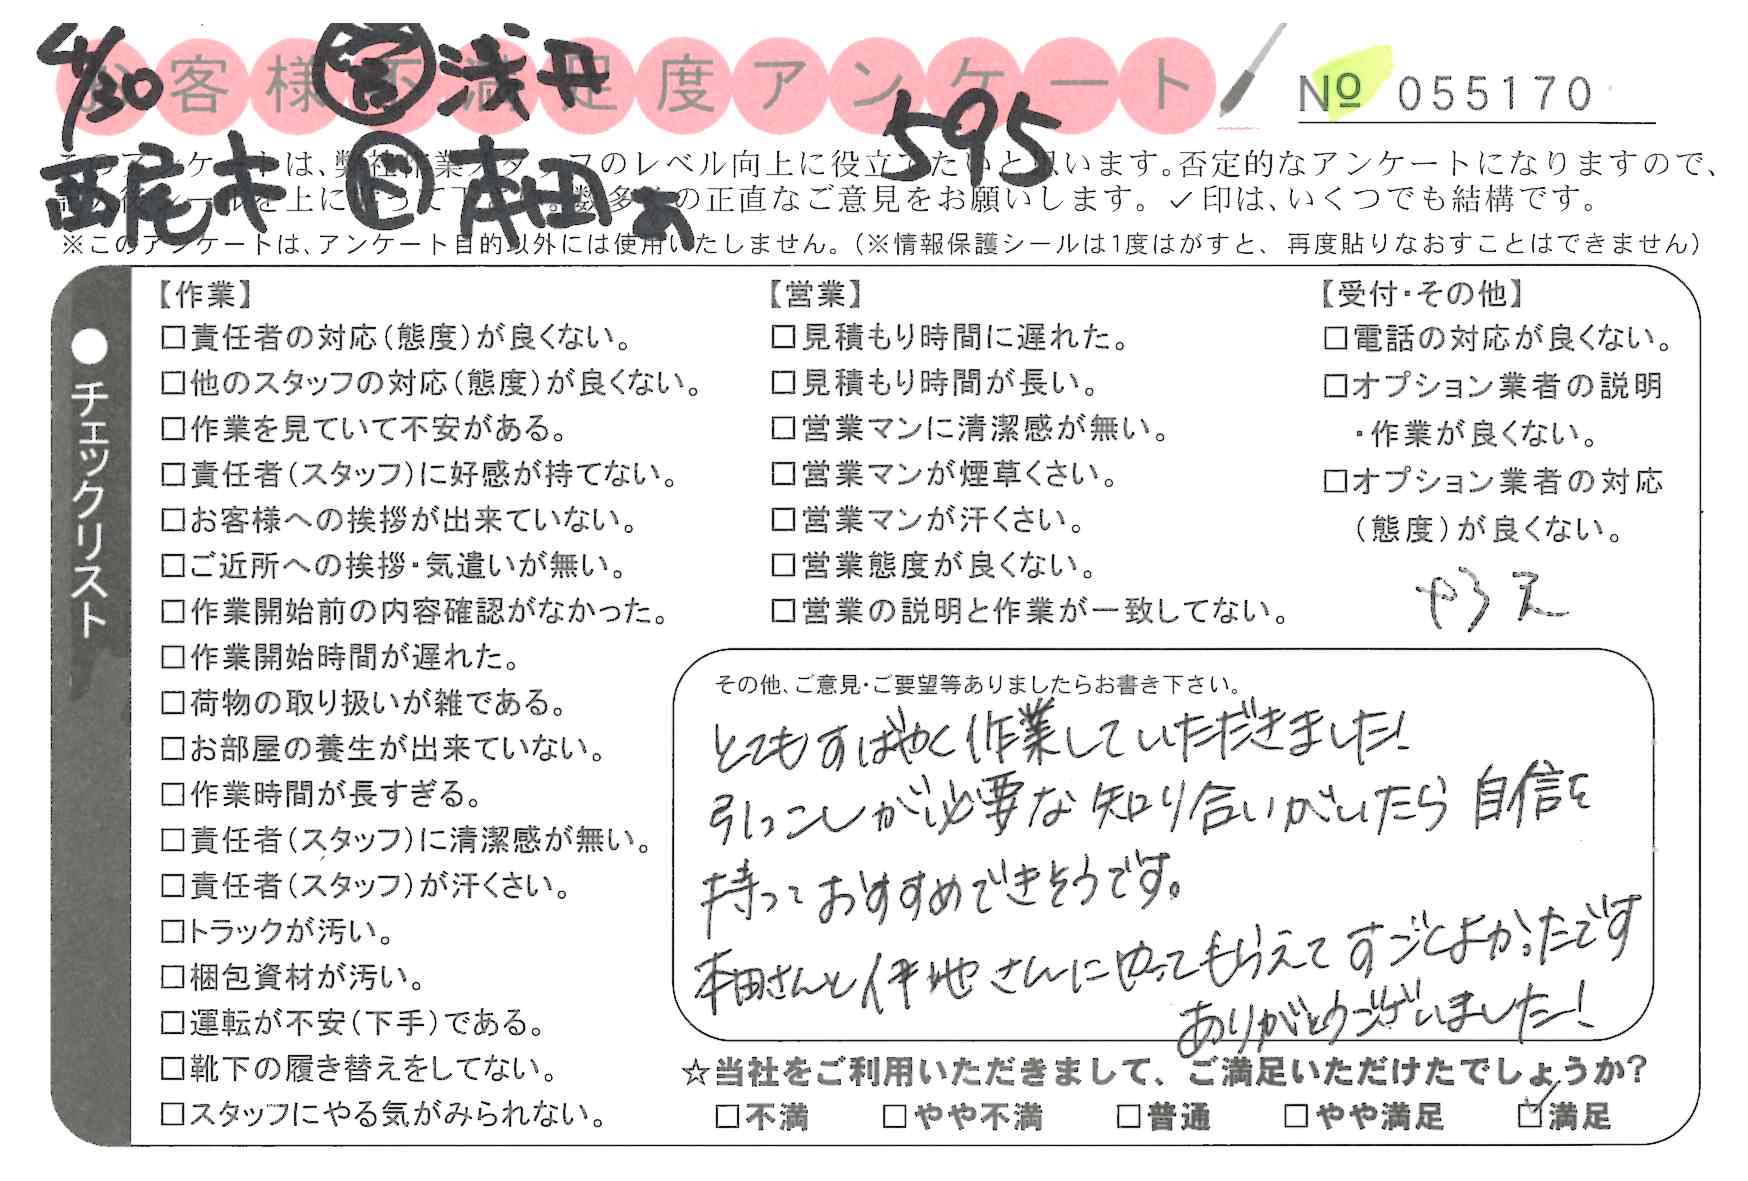 4/30 営 浅井
お客様不満足度アンケート
№ 055170
西尾市 上 本田
595
このアンケートは、弊社作業スタッフのレベル向上に役立てたいと思います。否定的なアンケートになりますので、
を上に 数多くの正直なご意見をお願いします。✓印は、いくつでも結構です。
※このアンケートは、アンケート目的以外には使用いたしません。(※情報保護シールは1度はがすと、再度貼りなおすことはできません)
●チェックリスト
【作業】
□責任者の対応(態度)が良くない。
□他のスタッフの対応(態度)が良くない。
□作業を見ていて不安がある。
□責任者(スタッフ)に好感が持てない。
□お客様への挨拶が出来ていない。
□ご近所への挨拶・気遣いが無い。
□作業開始前の内容確認がなかった。
□作業開始時間が遅れた。
□荷物の取り扱いが雑である。
□お部屋の養生が出来ていない。
□作業時間が長すぎる。
□責任者(スタッフ)に清潔感が無い。
□責任者(スタッフ)が汗くさい。
□トラックが汚い。
□梱包資材が汚い。
□運転が不安(下手)である。
□靴下の履き替えをしてない。
□スタッフにやる気がみられない。
【営業】
□見積もり時間に遅れた。
□見積もり時間が長い。
□営業マンに清潔感が無い。
□営業マンが煙草くさい。
□営業マンが汗くさい。
□営業態度が良くない。
□営業の説明と作業が一致してない。
【受付・その他】
□電話の対応が良くない。
□オプション業者の説明
・作業が良くない。
□オプション業者の対応
(態度)が良くない。
その他、ご意見・ご要望等ありましたらお書き下さい。
とてもすばやく作業していただきました!
引っこしが必要な知り合いがいたら自信を
持っておすすめできそうです。
本田さんと伊地さんにやってもらえてすごくよかったです
ありがとうございました!
☆当社をご利用いただきまして、ご満足いただけたでしょうか?
□不満 □やや不満 □普通 □やや満足 ☑満足